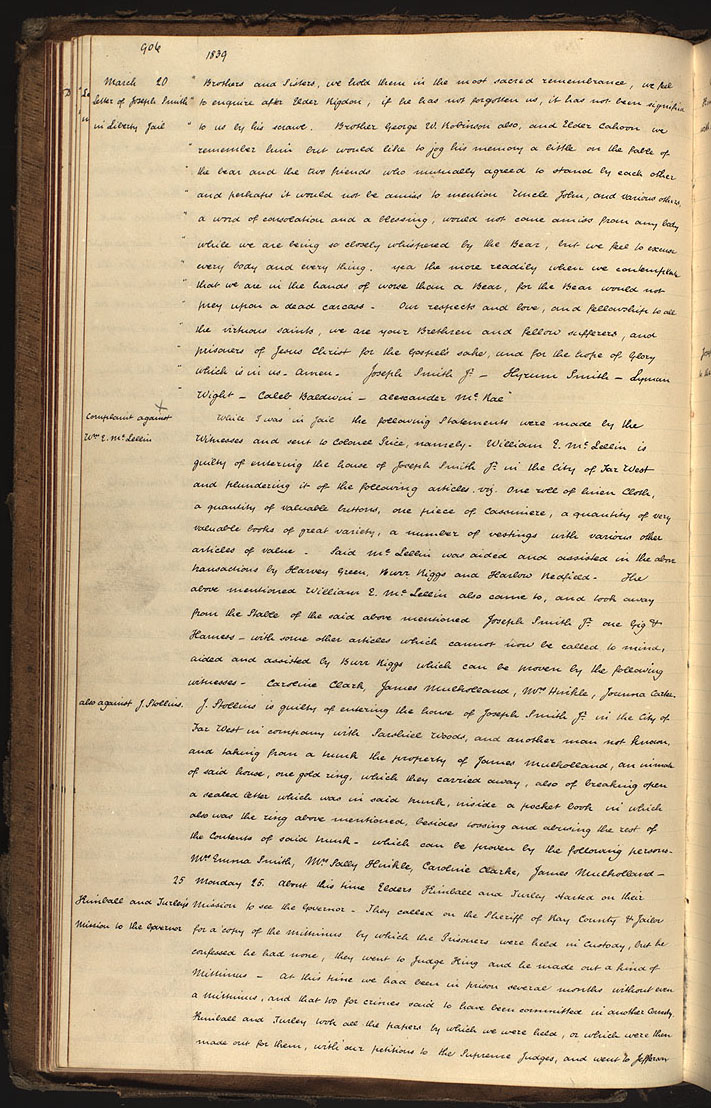 906
1839
March 20 " Brothers and Sisters, we hold them in the most sacred remembrance, we feel
Letter of Joseph Smith " to enquire after Elder Rigdon, if he has not forgotten us, it has not been signified
in Liberty Jail " to us by his scrawl. Brother George W. Robinson also, and Elder Cahoon we
" remember him but would like to jog his memory a little on the fable of
" the bear and the two friends who mutually agreed to stand by each other
" and perhaps it would not be amiss to mention Uncle John, and various others,
" a word of consolation and a blessing, would not come amiss from any body
" while we are being so closely whispered by the Bear, but we feel to excuse
" every body and every thing. yea the more readily when we contemplate
" that we are in the hands of worse than a Bear, for the Bear would not
" prey upon a dead carcass - Our respects and love, and fellowship to all
" the virtuous saints, we are your Brethren and fellow sufferers, and
" prisoners of Jesus Christ for the Gospels sake, and for the hope of Glory
" which is in us. Amen. Joseph Smith Jr. - Hyrum Smith - Lyman
Wight - Caleb Baldwin - Alexander Mc. Rae"
Complaint against While I was in Jail the following Statements were made by the
Wm E. Mc Lellin Witnesses and sent to Colonel Price, namely - William E. Mc Lellin is
guilty of entering the house of Joseph Smith Jr. in the City of Far West
and plundering it of the following articles viz. One roll of linen Cloth,
a quantity of valuable buttons, one piece of Cassimere, a quantity of very
valuable books of great variety, a number of vestings with various other
articles of value - Said Mc Lellin was aided and assisted in the above
transactions by Harvey Green, Burr Riggs and Harlow Redfield - The
above mentioned William E. Mc Lellin also came to, and took away
from the Stable of the said above mentioned Joseph Smith Jr. one Gig &
Harness - with some other articles which cannot now be called to mind,
aided and assisted by Burr Riggs which can be proven by the following
witnesses - Caroline Clark, James Mulholland, Mrs Hinkle, Joanna Carter.
also against J. Stollins. J. Stollins is guilty of entering the house of Joseph Smith Jr. in the City of
Far West in company with Sarshiel Woods, and another man not known,
and taking from a trunk the property of James Mulholland, an inmate
of said house, one gold ring, which they carried away, also of breaking open
a sealed letter which was in said trunk, inside a pocket book in which
also was the ring above mentioned, besides tossing and abusing the rest of
the Contents of said trunk - which can be proven by the following persons -
Mrs Emma Smith, Mrs Sally Hinkle, Caroline Clarke, James Mulholland -
25 Monday 25. About this time Elders Kimball and Turley started on their
Kimball and Turley's Mission to see the Governor - They called on the Sheriff of Ray County & Jailor
Mission to the Governor for a copy of the Mittimus by which the Prisoners were held in Custody, but he
confessed he had none, they went to Judge King and he made out a kind of
Mittimus - At this time we had been in prison several months without even
a Mittimus, and that too for crimes said to have been committed in another County.
Kimball and Turley took all the papers by which we were held, or which were then
made out for them, with our petitions to the Supreme Judges, and went to Jefferson